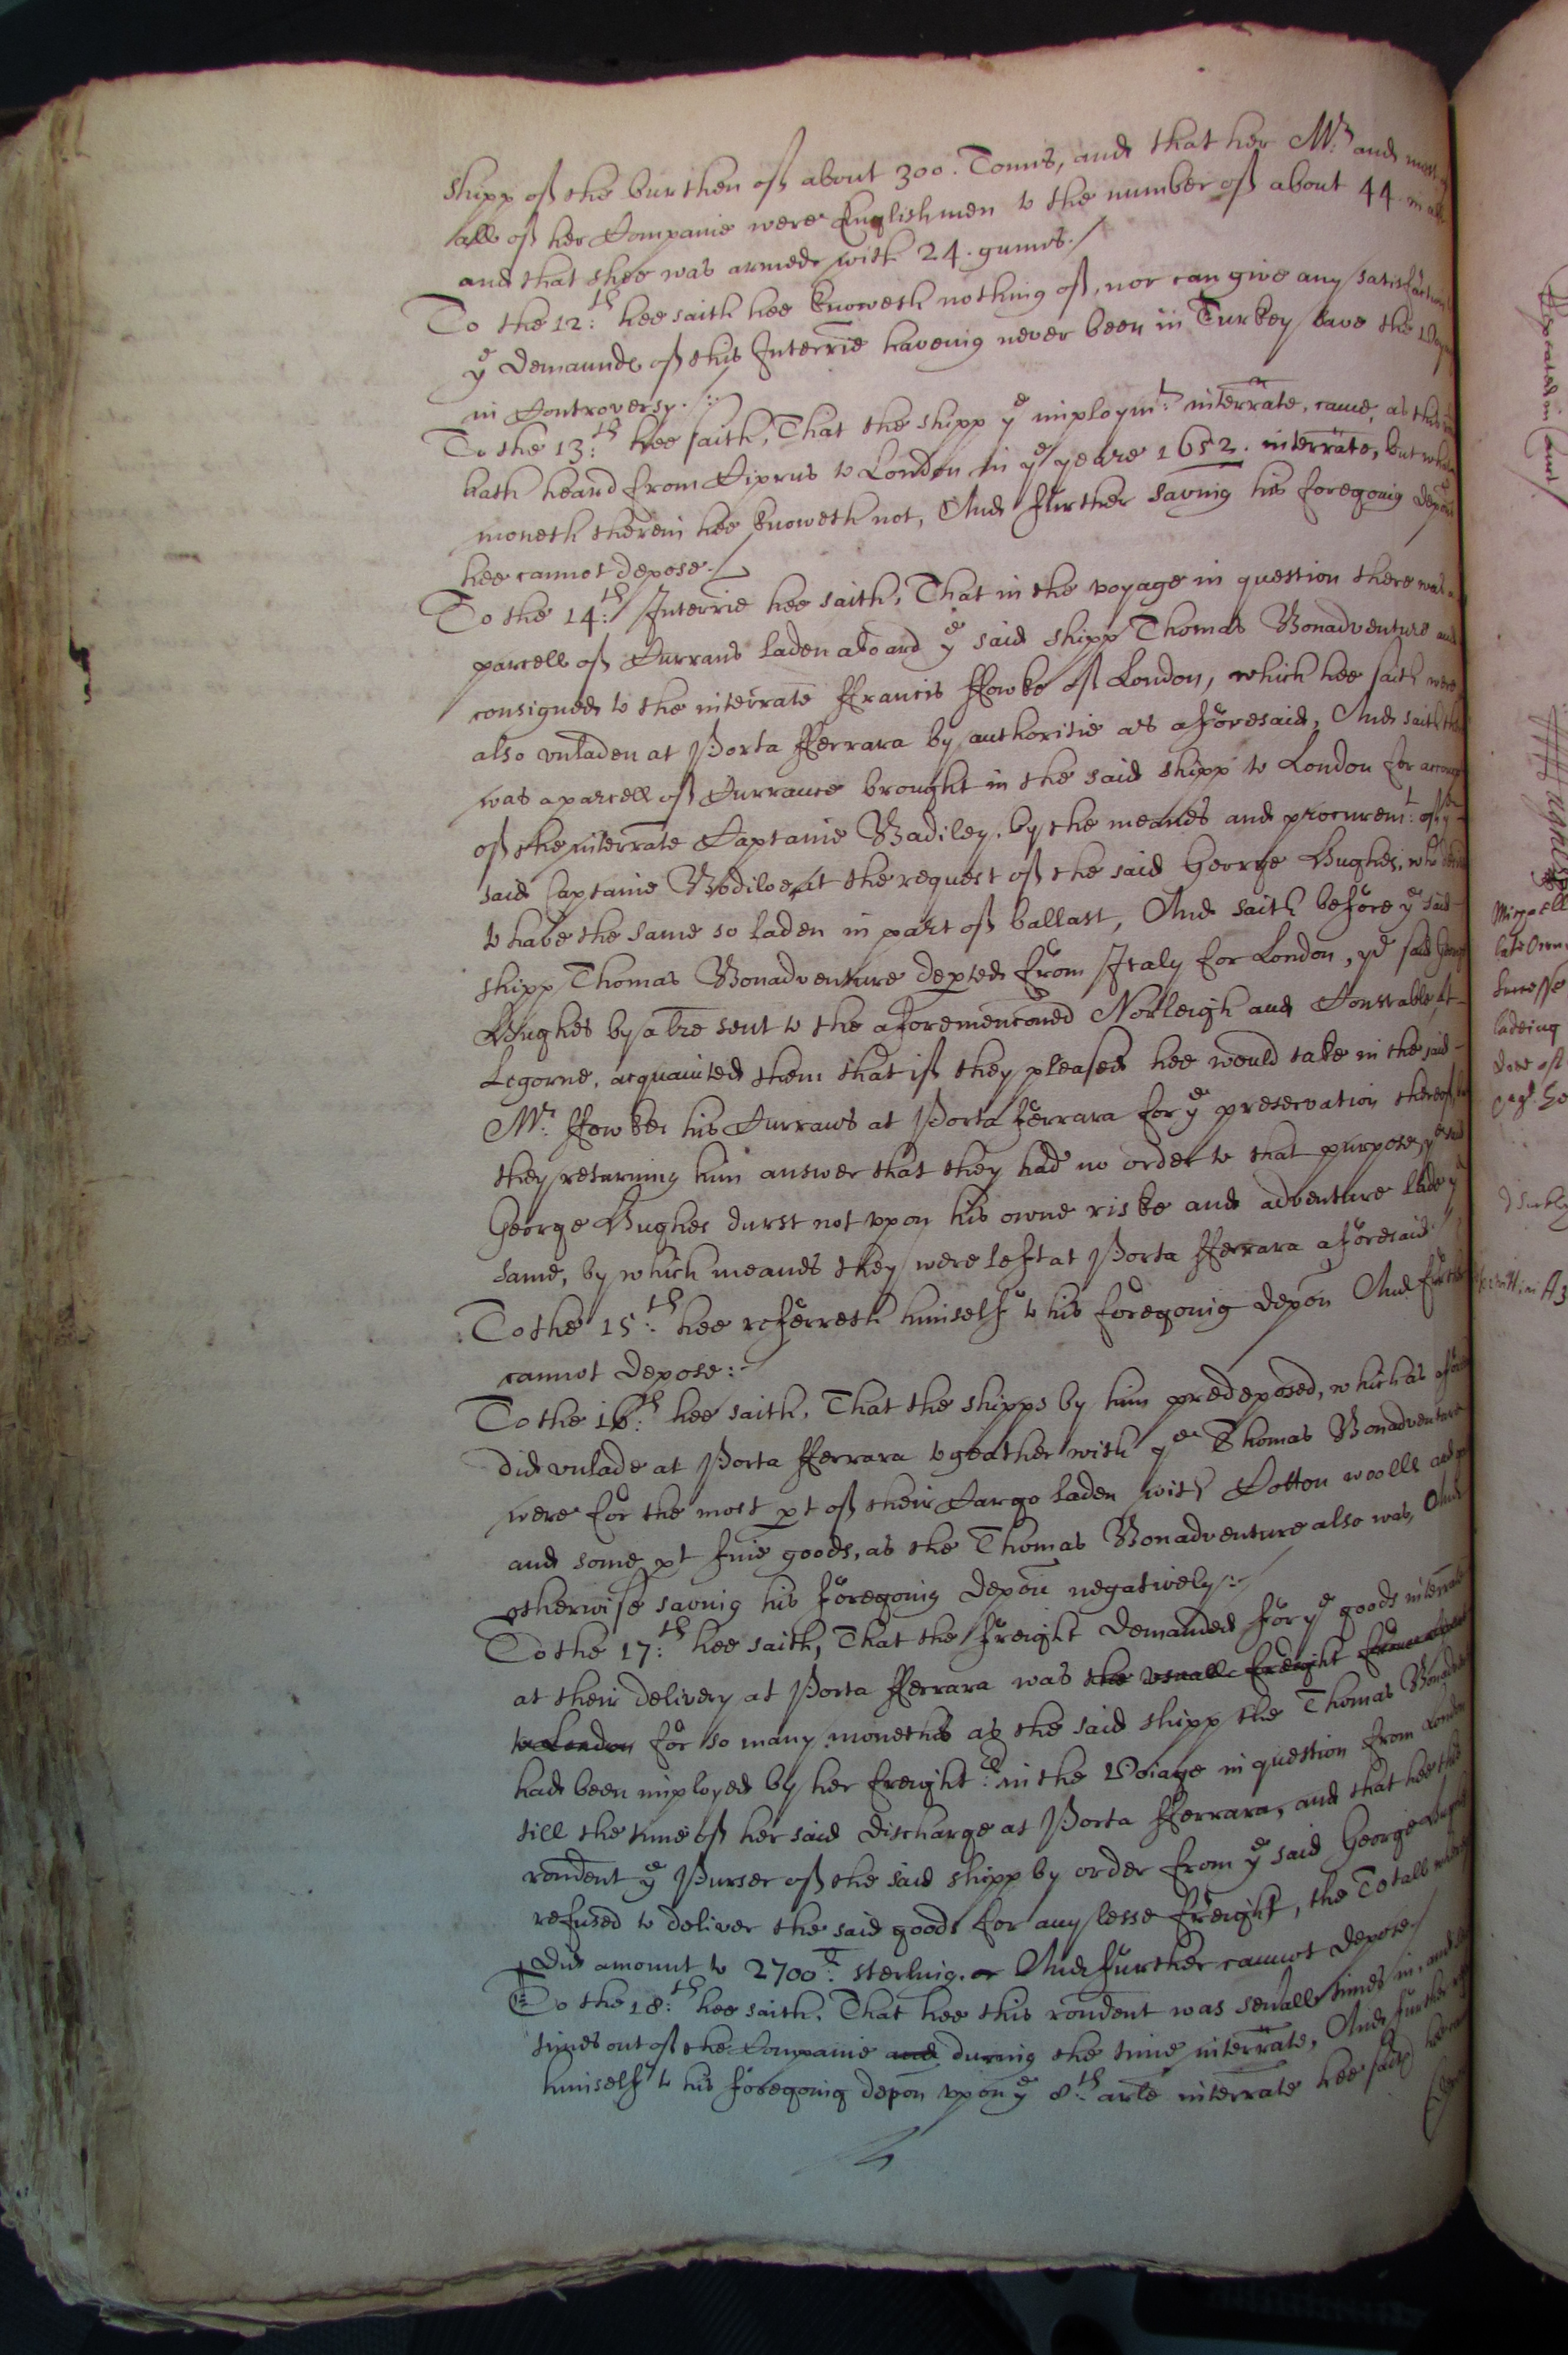 shipp of the burthen of about 300. Tonns, and that her Mr: and most
all of her Companie were Englishmen to the number of about 44 in all
and that shee was armed with 24. gunns./
To the 12:th hee saith hee knoweth nothing of, nor can give any satisfaction
ye demaunds of this Interrie haveing never been in Turkey save the
in Controversy./:
To the 13:th hee saith, That the shipp ye imploymt: interrate, came, as this
hath heard from Ciprus to London in ye yeare 1652. interrate, but what
moneth therein hee knoweth not, And further saving his foregoing depon
hee cannot depose./
To the 14:th Interrie hee saith, That in the voyage in question there was a
parcell of Currans laden aboard ye said shipp Thomas Bonadventure and
consigned to the interrate ffrancis ffowke of London, which hee saith were
also vnladen at Porta fferrara by authoritie as aforesaid, And saith
was a parcell of Currance brought in the said shipp to London for
of the interrate Captaine Badiley, by the meanes and procuremt: of ye
said Captaine Bodiloe, at the request of the said George Hughes, who
to have the same so laden in part of ballast, And saith before ye said
shipp Thomas Bonadventure depted from Italy for London, ye said George
Hughes by a lre sent to the aforemenconed Norleigh and Constable, at
Legorne, acquainted them that if they pleased hee would take in the said
Mr: ffowkes his Currans at Porta fferrara for ye preservation thereof,
they returning him answer that they had no order to that purpose, ye said
George Hughes durst not vpon his owne riske and adventure lade ye
same, by which meanes they were left at Porta fferrara aforesaid
To the 15:th hee referreth himself to his foregoing depon And further
cannot depose:-
To the 16:th hee saith, That the shipps by him predeposed, which as
did vnlade at Porta fferrara togeather with ye Thomas Bonadventure
were for the most pt of their Cargo laden with Cotton woolls and
and some pt fine goods, as the Thomas Bonadventure also was, And
otherwise saving his foregoing depon negatively:/
To the 17:th hee saith, That the freight demanded for ye goods interrate
at their delivery at Porta fferrara was the vsuall freight from
to London for so many moneths as the said shipp the Thomas
had been imployed by her freight: in the Voiage in question from London
till the time of her said discharge at Porta fferrara, and that hee this
rondent ye Purser of the said shipp by order from ye said George Hughes
refused to deliver the said goods for any lesse freight, the Totall
did amount to 2700:l sterling. or And further cannot depose/
To the 18:th hee saith, That hee this rondent was severall times in, and
times out of the Companie and during the time interrate, And further
himself to his foregoing depon vpon ye 8:th arle interrate hee saith hee